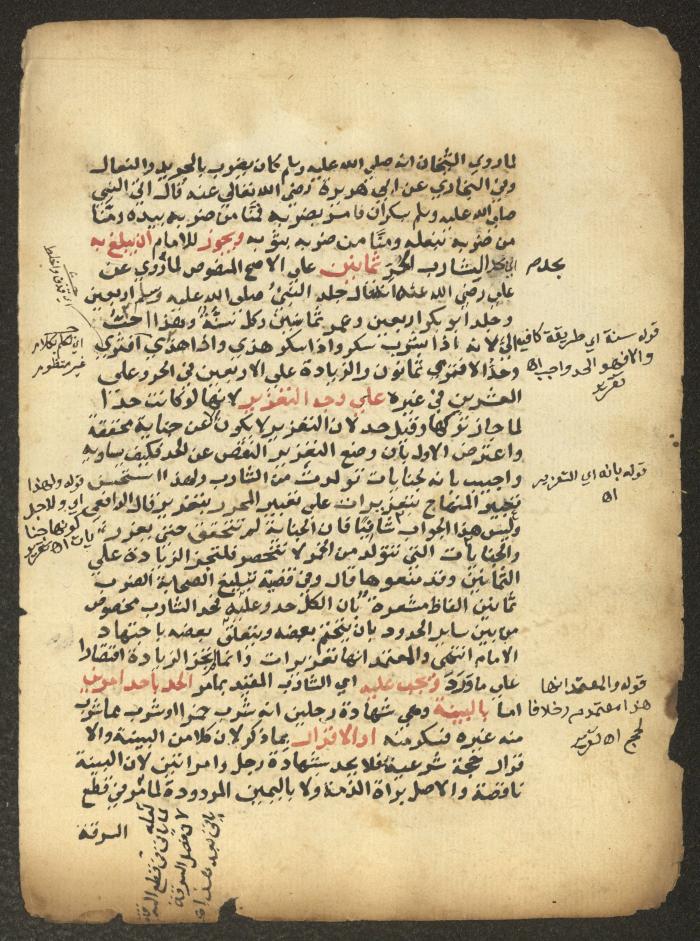 لما روي الشيخان انه صلي الله عليه وسلم كان يضرب بالجريد والنعال
وفي البخاري عن ابي هريرة رضي الله تعالي عنه قال اتي النبي
صلي الله عليه وسلم بسكران فامر بضربه فمنا من ضربه بيده ومنا
من ضربه بنعله ومنا من ضربه بثوبه ويجوز للامام ان يبلغ به
الشارب الحر ثمانين علي الاصح المنصوص لما روي عن
علي رضي الله عنه انه قال جلد النبي صلي الله عليه وسلم اربعين
وجلد ابو بكر اربعين وعمر ثمانين وكل سنة وهذا احب
الي لانه اذا شرب سكر واذا سكر هذي واذا هذي افتري
وحد الافتري ثمانون والزيادة علي الاربعين في الحر وعلي
العشرين في غيره علي وجه التعزير لانها لو كانت حدا
لما جاز تركها وقيل حد لان التعزير لا يكون الا عن جناية محققة
واعترض الاول بان وضع التعزير النقص عن الحد فكيف يساويه
واجيب بانه لجنايات تولدت من الشارب ولهذا استحسن
تعبير المنهاج بتعزيرات علي تعبير المحرر بتعزير قال الرافعي
وليس هذا الجواب شافيا فان الجناية لم تتحقق حتي يعزر
والجنايات التي تتولد من الخمر لا تنحصر فلتجز الزيادة علي
الثمانين وقد منعوها قال وفي قصة تبليغ الصحابة الضرب
ثمانين الفاظ مشعرة بان الكل حد وعليه فحد الشارب مخصوص
من بين ساير الحدود بان يتحتم بعضه ويتعلق بعضه باجتهاد
الامام انتهي والمعتمد انها تعزيرات وانما لم تجز الزيادة اقتصارا
علي ما ورد ويجب عليه اي الشارب المقيد بما مر الحد باحد امرين
اما بالبينة وهي شهادة رجلين انه شرب خمرا او شرب مما شرب
منه غيره فسكر منه او الاقرار بما ذكر لان كلا من البينة والا
قرار حجة شرعية فلا يحد بشهادة رجل وامراتين لان البينة
ناقصة والاصل براة الذمة ولا باليمين المردودة لما مر في قطع
السرقة
قوله سنة اي طريقة كافية
والافهو الحد واجب اه
تقرير
قوله بانه اي التعزير
اه
قوله والمعتمد انها
هذا معتمد م ر خلافا
لحج اه تقرير
قوله ولهذا
اي ولاجل
كونها جنا
يات اه تقرير
اي تكلم بكلام
غير منظوم